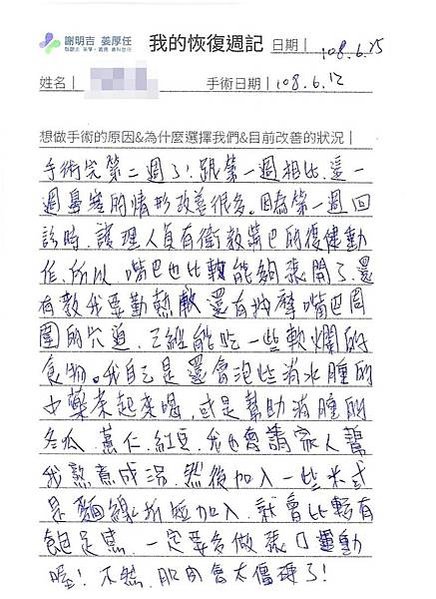 謝明吉 姜厚任 我的恢復週記 日期| 108.6.25
姓名| 手術日期| 108.6.12
想做手術的原因&為什麼選擇我們&目前改善的狀況|
手術完第二週了!跟第一週相比,這一
週鼻塞的情形改善很多。因為第一週回
診時,護理人員有衛教嘴巴的復健動
作,所以 嘴巴也比較能夠張開了,還
有教我要勤熱敷 還有按摩嘴巴周
圍的穴道,已經能吃一些軟爛的
食物。我自己是還會泡些消水腫的
中藥茶起來喝,或是幫助消腫的
冬瓜、薏仁、紅豆,我也會請家人幫
我熬煮成湯,然後加入一些米或
是麵線折短加入,就會比較有
飽足感,一定要多做張口運動
喔!不然,肌肉會太僵硬了!